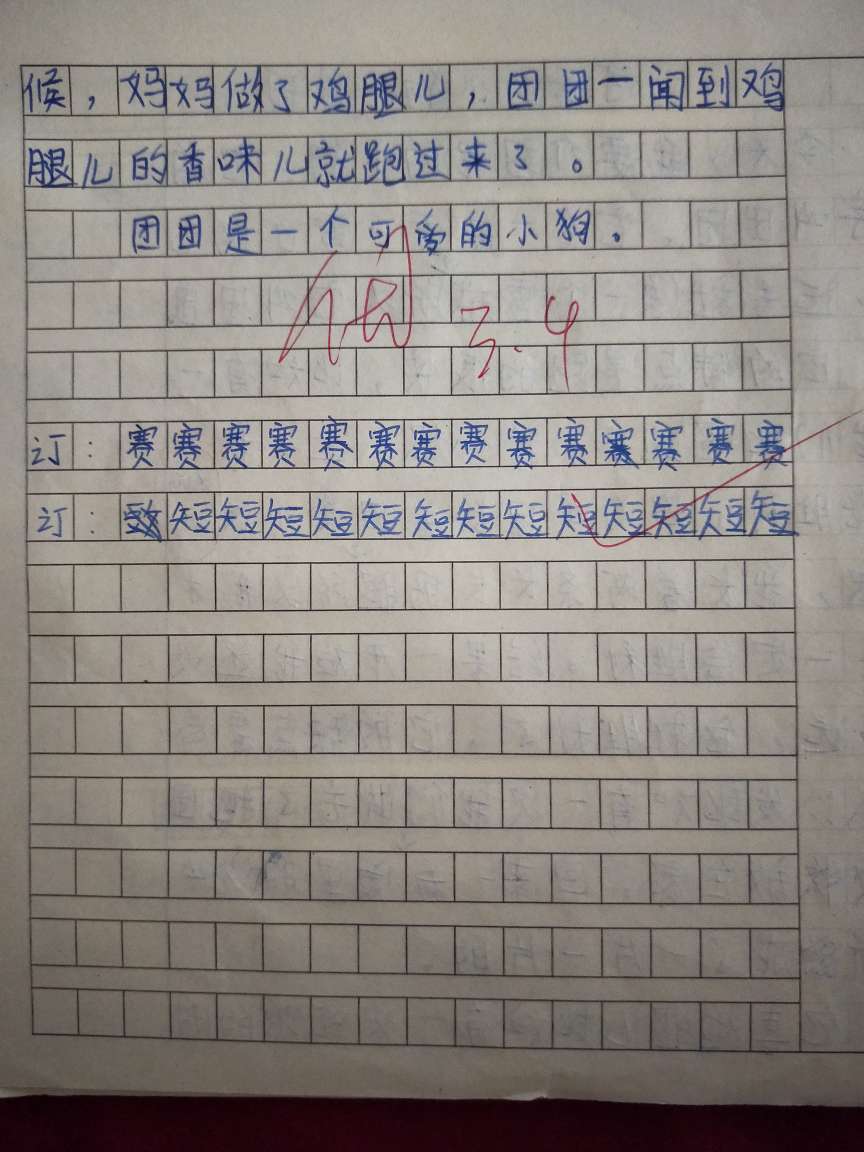 候，妈妈做了鸡腿儿，团团一闻到鸡
腿儿的香味儿就跑过来了。
团团是一个可爱的小狗。
优 3.4
订：赛赛赛赛赛赛赛赛赛赛赛赛赛赛
订：短短短短短短短短短短短短短